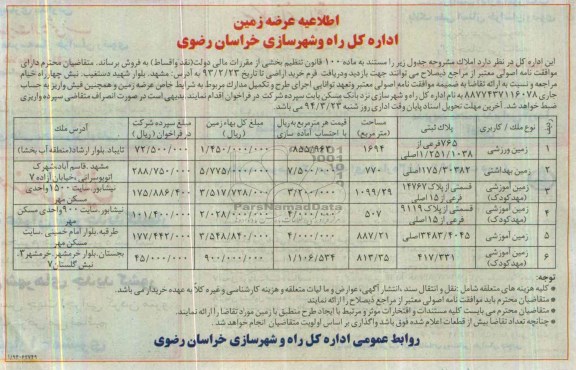 اطلاعیه عرضه زمین
اداره کل راه وشهرسازی خراسان رضوی
این اداره کل در نظر دارد املاک مشروحه جدول زیر را مستند به ماده ۱۰۰ قانون تنظیم بخشی از مقررات مالی دولت(نقد واقساط) به فروش برساند. متقاضیان محترم دارای
موافقت نامه اصولی معتبر از مراجع ذیصلاح می توانند جهت بازدید ودریافت فرم خرید اراضی تا تاریخ ۹۴/۲/۲۳ به آدرس: مشهد. بلوار شهید دستغیب. نبش چهارراه خیام
مراجعه و نسبت به ارائه تقاضا به ضمیمه موافقت نامه اصولی معتبر وتعهد توانایی اجرای طرح و تکمیل مدارک مربوط به شرایط خاص عرضه زمین و همچنین فیش واریز به حساب
سپرده شرکت در فراخوان اقدام نمایند.بدیهی است در صورت انصراف متقاضی سپرده واریزی
ضبط خواهد شد. آخرین مهلت تحویل اسناد پایان وقت اداری روز شنبه ۹۴/۳/۲۳ می باشد.
ردیف | نوع ملک / کاربری | پلاک ثبتی | مساحت (متر مربع) | قیمت هر مترمربع به ریال با احتساب آماده سازی | مبلغ کل بهاء زمین (ریال) | مبلغ سپرده شرکت در فراخوان (ریال) | آدرس ملک
۱ | زمین ورزشی | ۷۶۵فرعی از ۱/۲۵۱/۱۰۳۸اصلی | ۱۶۹۴ | ۸۵۵/۹۴۳ | ۱/۴۵۰/۰۰۰/۰۰۰ | ۷۲/۵۰۰/۰۰۰ | تایباد. بلوار ارشاد( منطقه آب بخشا)
۲ | زمین بهداشتی | ۱۷۵/۳۰۳۸۲اصلی | ۷۷۰ | ۷/۵۰۰/۰۰۰ | ۵/۷۷۵/۰۰۰/۰۰۰ | ۲۸۸/۷۵۰/۰۰۰ | مشهد .قاسم آباد.شهرک اتوبوسرانی.خیابان آزاده ۷
۳ | زمین آموزشی (مهدکودک) | قسمتی از پلاک ۱۴۷۶۷ فرعی از ۱۵ اصلی | ۱۰۹۹/۲۹ | ۳/۲۰۰/۰۰۰ | ۳/۵۱۷/۷۲۸/۰۰۰ | ۱۷۵/۸۸۶/۴۰۰ | نیشابور.سایت ۱۵۰۰واحدی مسکن مهر
۴ | زمین آموزشی (مهدکودک) | قسمتی از پلاک ۹۱۱۹ فرعی از ۱۵ اصلی | ۵۰۷ | ۴/۰۰۰/۰۰۰ | ۲/۰۲۸/۰۰۰/۰۰۰ | ۱۰۱/۴۰۰/۰۰۰ | نیشابور.سایت ۹۰۰واحدی مسکن مهر
۵ | زمین آموزشی | ۳۴۸۳/۴۰۴۵اصلی | ۸۸۷/۲۱ | ۴/۰۰۰/۰۰۰ | ۳/۵۴۸/۸۴۰/۰۰۰ | ۱۷۷/۴۴۲/۰۰۰ | طرقبه بلوار امام خمینی .سایت مسکن مهر
۶ | زمین آموزشی (مهدکودک) | ۴۱۷/۳۳۱ | ۸۱۳/۳۵ | ۱/۱۰۶/۵۳۴ | ۹۰۰/۰۰۰/۰۰۰ | ۴۵/۰۰۰/۰۰۰ | بجستان.بلوار خرمشهر. خرمشهر۳. نبش گلستان۷
توجه :
• کلیه هزینه های متعلقه شامل :نقل و انتقال سند ،انتشار آگهی،عوارض و ما لیات متعلقه و هزینه کارشناسی و غیره کلا به عهده خریدار می باشد.
• متقاضیان محترم باید موافقت نامه اصولی معتبر از مراجع ذیصلاح را ارائه نمایند
• متقاضیان محترم می بایست کلیه مستندات و افتخارات موثر و مرتبط با ایجاد طرح منطبق با زمین مورد تقاضا را ارائه نمایند.
• چنانچه تعداد تقاضا بیش از قطعات اعلام شده فوق باشد واگذاری بر اساس اولویت متقاضیان انجام خواهد شد.
روابط عمومی اداره کل راه و شهرسازی خراسان رضوی
ParsNamadData